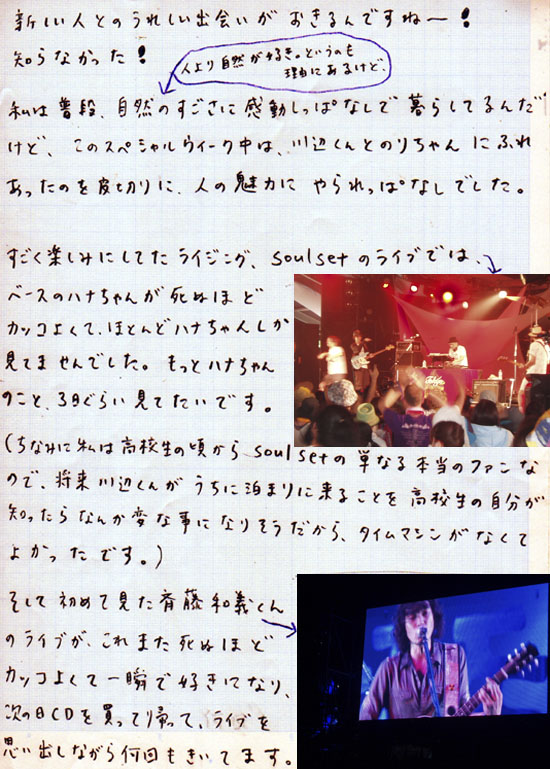 新しい人とのうれしい出会いがおきるんですねー！
知らなかった！
人より自然が好き。というのも
理由にあるけど、
私は普段、自然のすごさに感動しっぱなしで暮らしてるんだ
けど、このスペシャルウィーク中は、川辺くんとのりちゃんにふれ
あったのを皮切りに、人の魅力にやられっぱなしでした。
すごく楽しみにしてたライジング、soulsetのライブでは、
ベースのハナちゃんが死ぬほど
カッコよくて、ほとんどハナちゃんしか
見てませんでした。もっとハナちゃん
のこと、3日ぐらい見てたいです。
（ちなみに私は高校生の頃からsoulsetの単なる本当のファンな
ので、将来川辺くんがうちに泊まりに来ることを高校生の自分が
知ったらなんか変な事になりそうだから、タイムマシンがなくて
よかったです。）
そして初めて見た斉藤和義くん
のライブが、これまた死ぬほど
カッコよくて一瞬で好きになり、
次の日CDを買って帰って、ライブを
思い出しながら何回もきいてます。